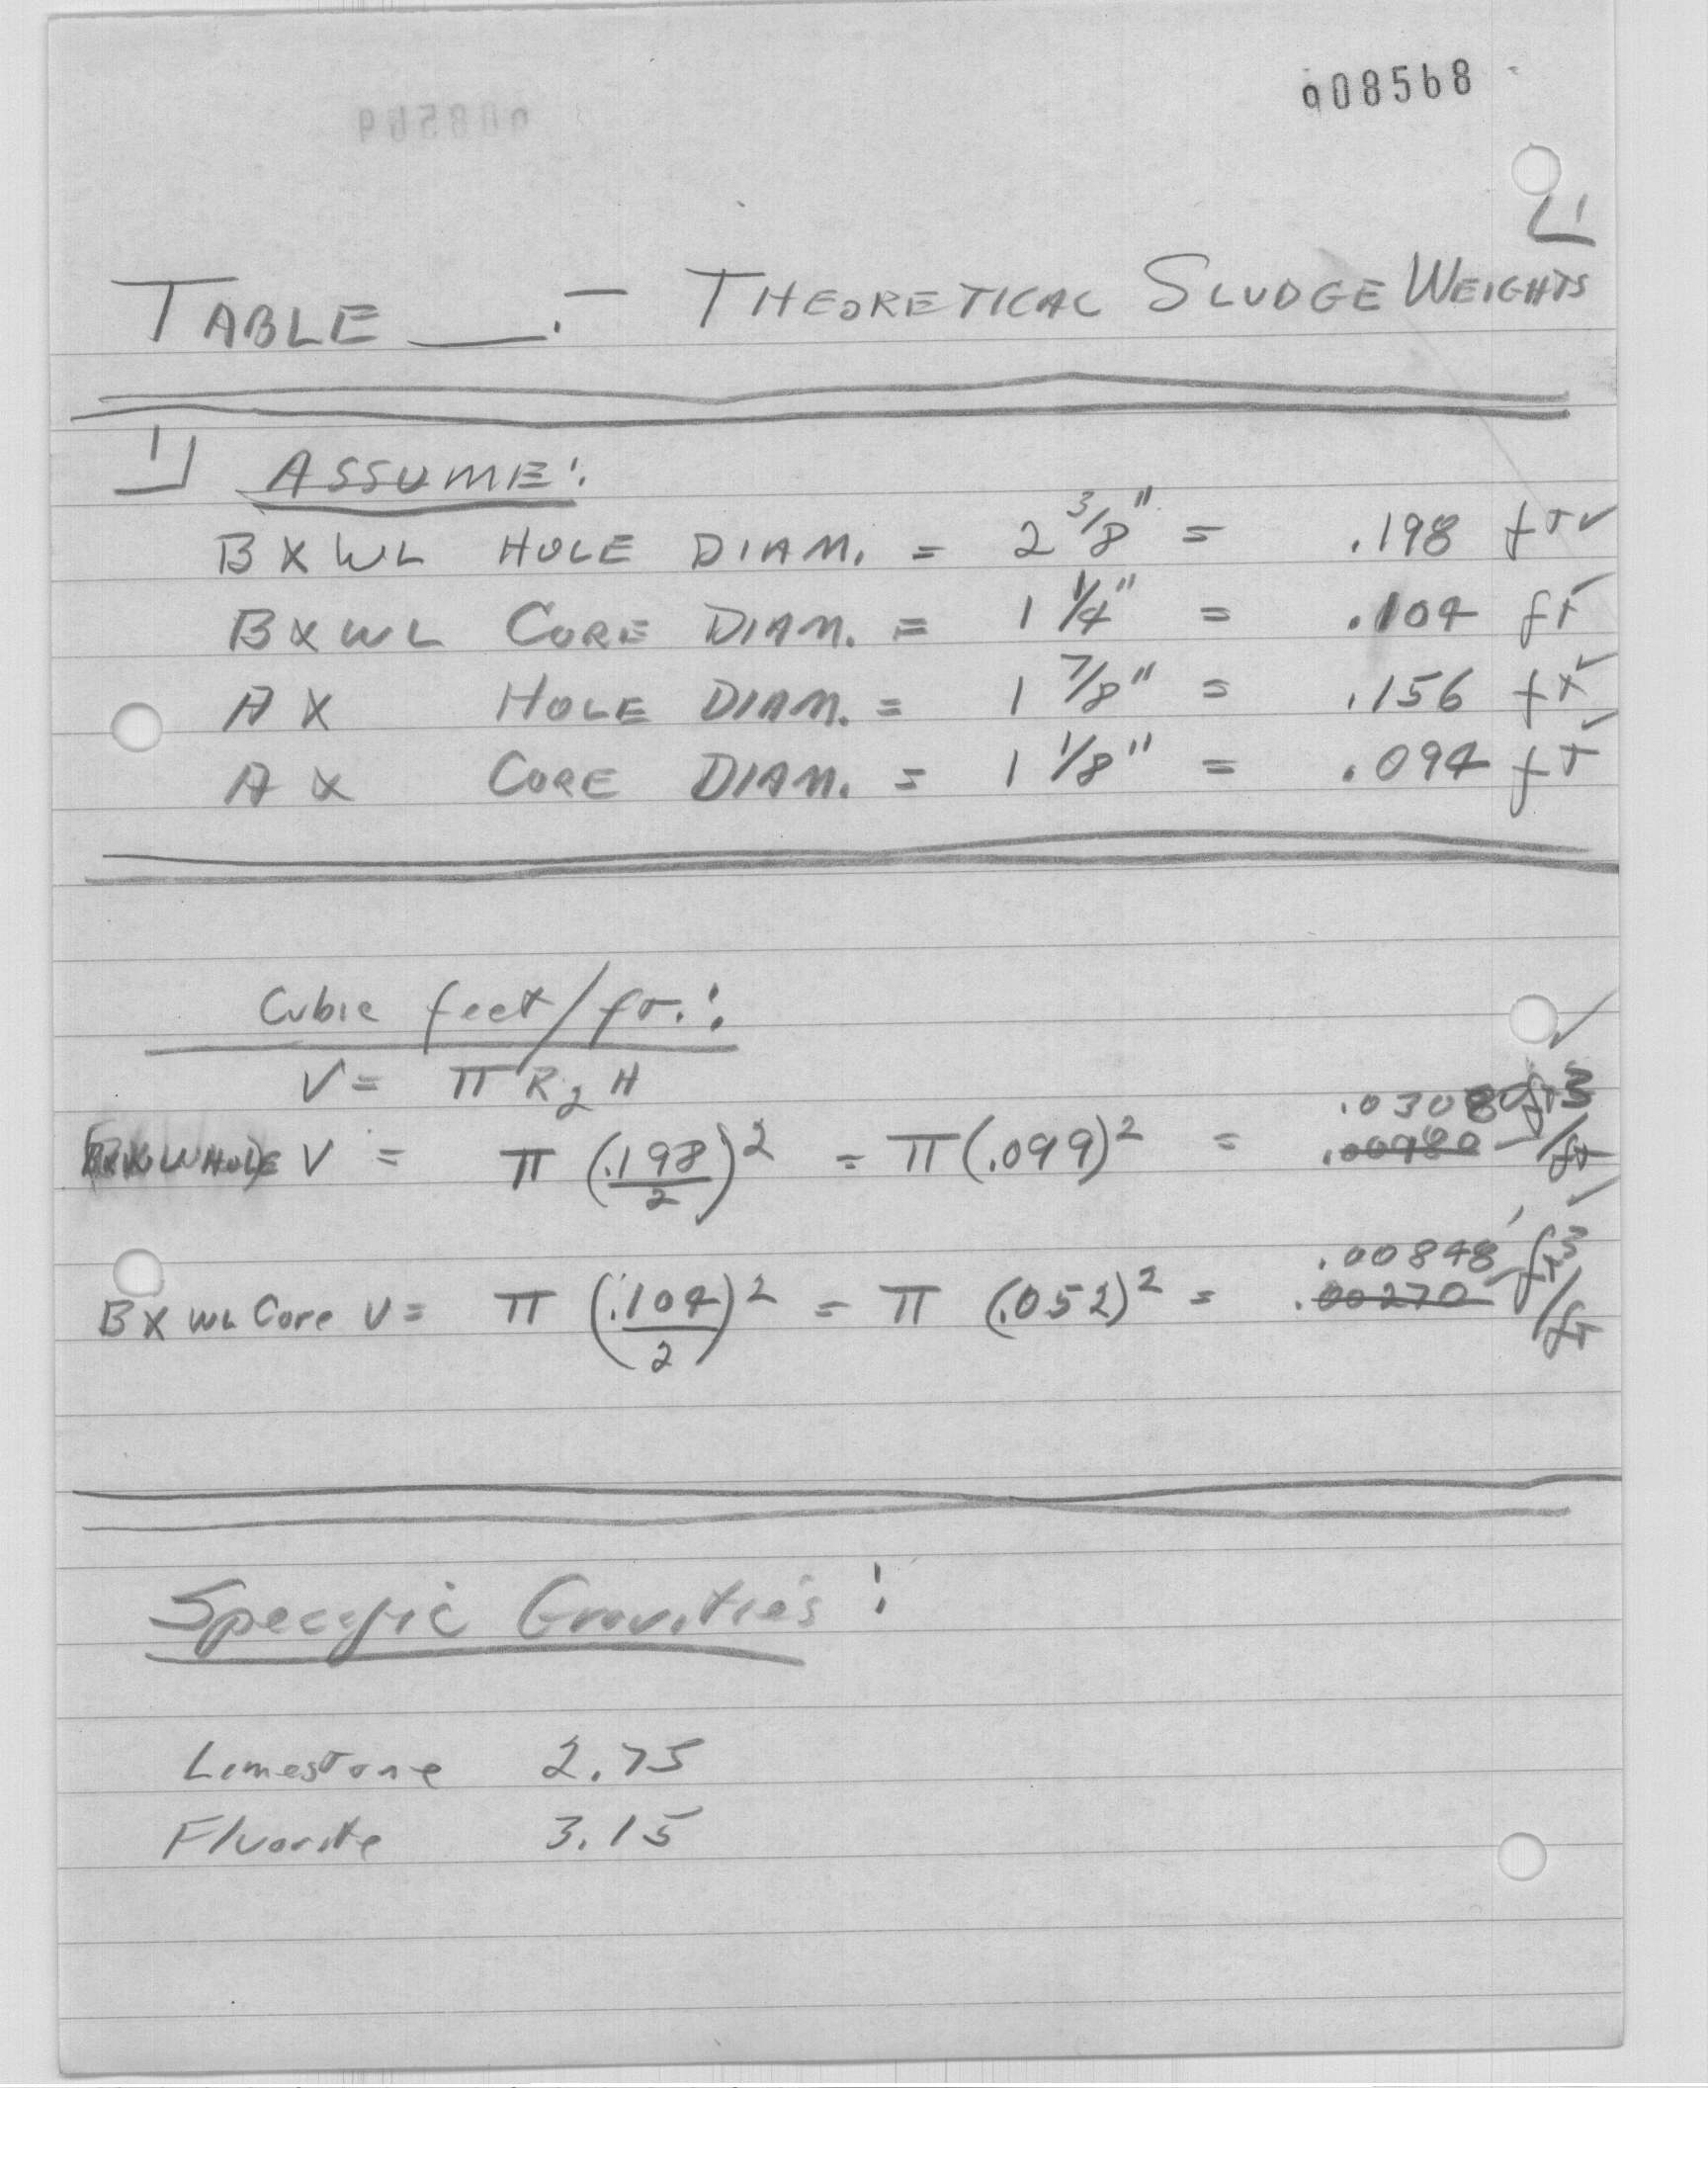 908568
L1
TABLE __.— THEORETICAL SLUDGE WEIGHTS
1) ASSUME:
BXWL HOLE DIAM. = 2 3/8" = .198 ft ✓
BXWL CORE DIAM. = 1 1/4" = .104 ft ✓
AX HOLE DIAM. = 1 7/8" = .156 ft ✓
AX CORE DIAM. = 1 1/8" = .094 ft ✓
Cubic feet/ft.:
V = π R2 H
.03080 ft3 ✓
(BXWL HOLE) V = π (.198/2)2 = π(.099)2 = .00980 /ft
.00848 ft3 ✓
BXWL Core V = π (.104/2)2 = π (.052)2 = .00270 /ft
Specific Gravities:
Limestone 2.75
Fluorite 3.15